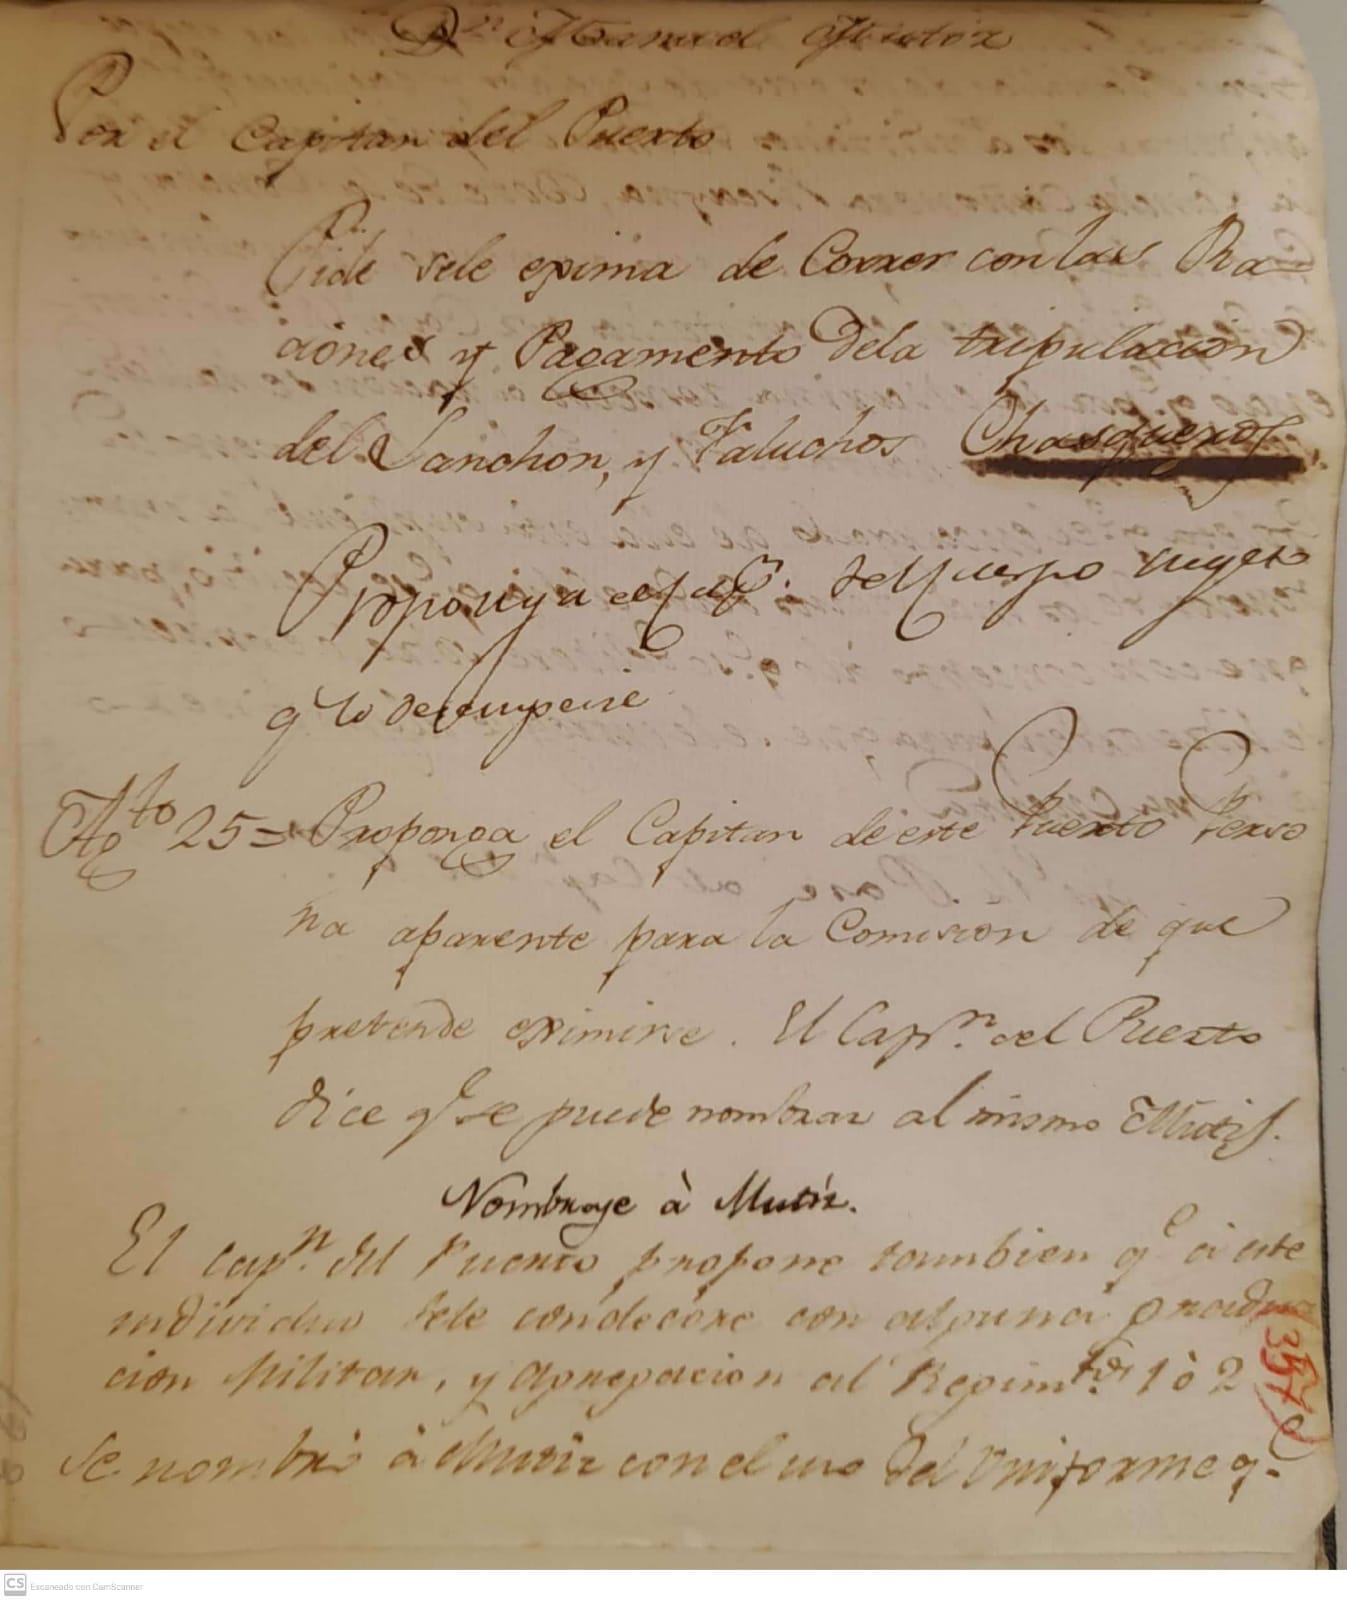 Dn. Manuel Mutiz
Por el Capitan del Puerto
Pide sele exima de Correr con las Ra=
ciones y Pagamento dela tripulacion
del Lanchon, y Faluchos Chasqueros
Proponga el Capn. del Puerto sugeto
q lo desempeñe
Agto 25= Proponga el Capitan de este Puerto Perso
na aparente para la Comision de que
pretende eximirse. El Capn. del Puerto
dice qe se puede nombrar al mismo Mutis.
Nombrase à Mutiz.
El Capn. del Puerto propone tambien qe à este
individuo sele condecore con alguna gradua
cion Militar, y agregacion al Regimto. 1 ò 2
Se nombrò à Mutiz con el uso del Uniforme q.
357
CS Escaneado con CamScanner